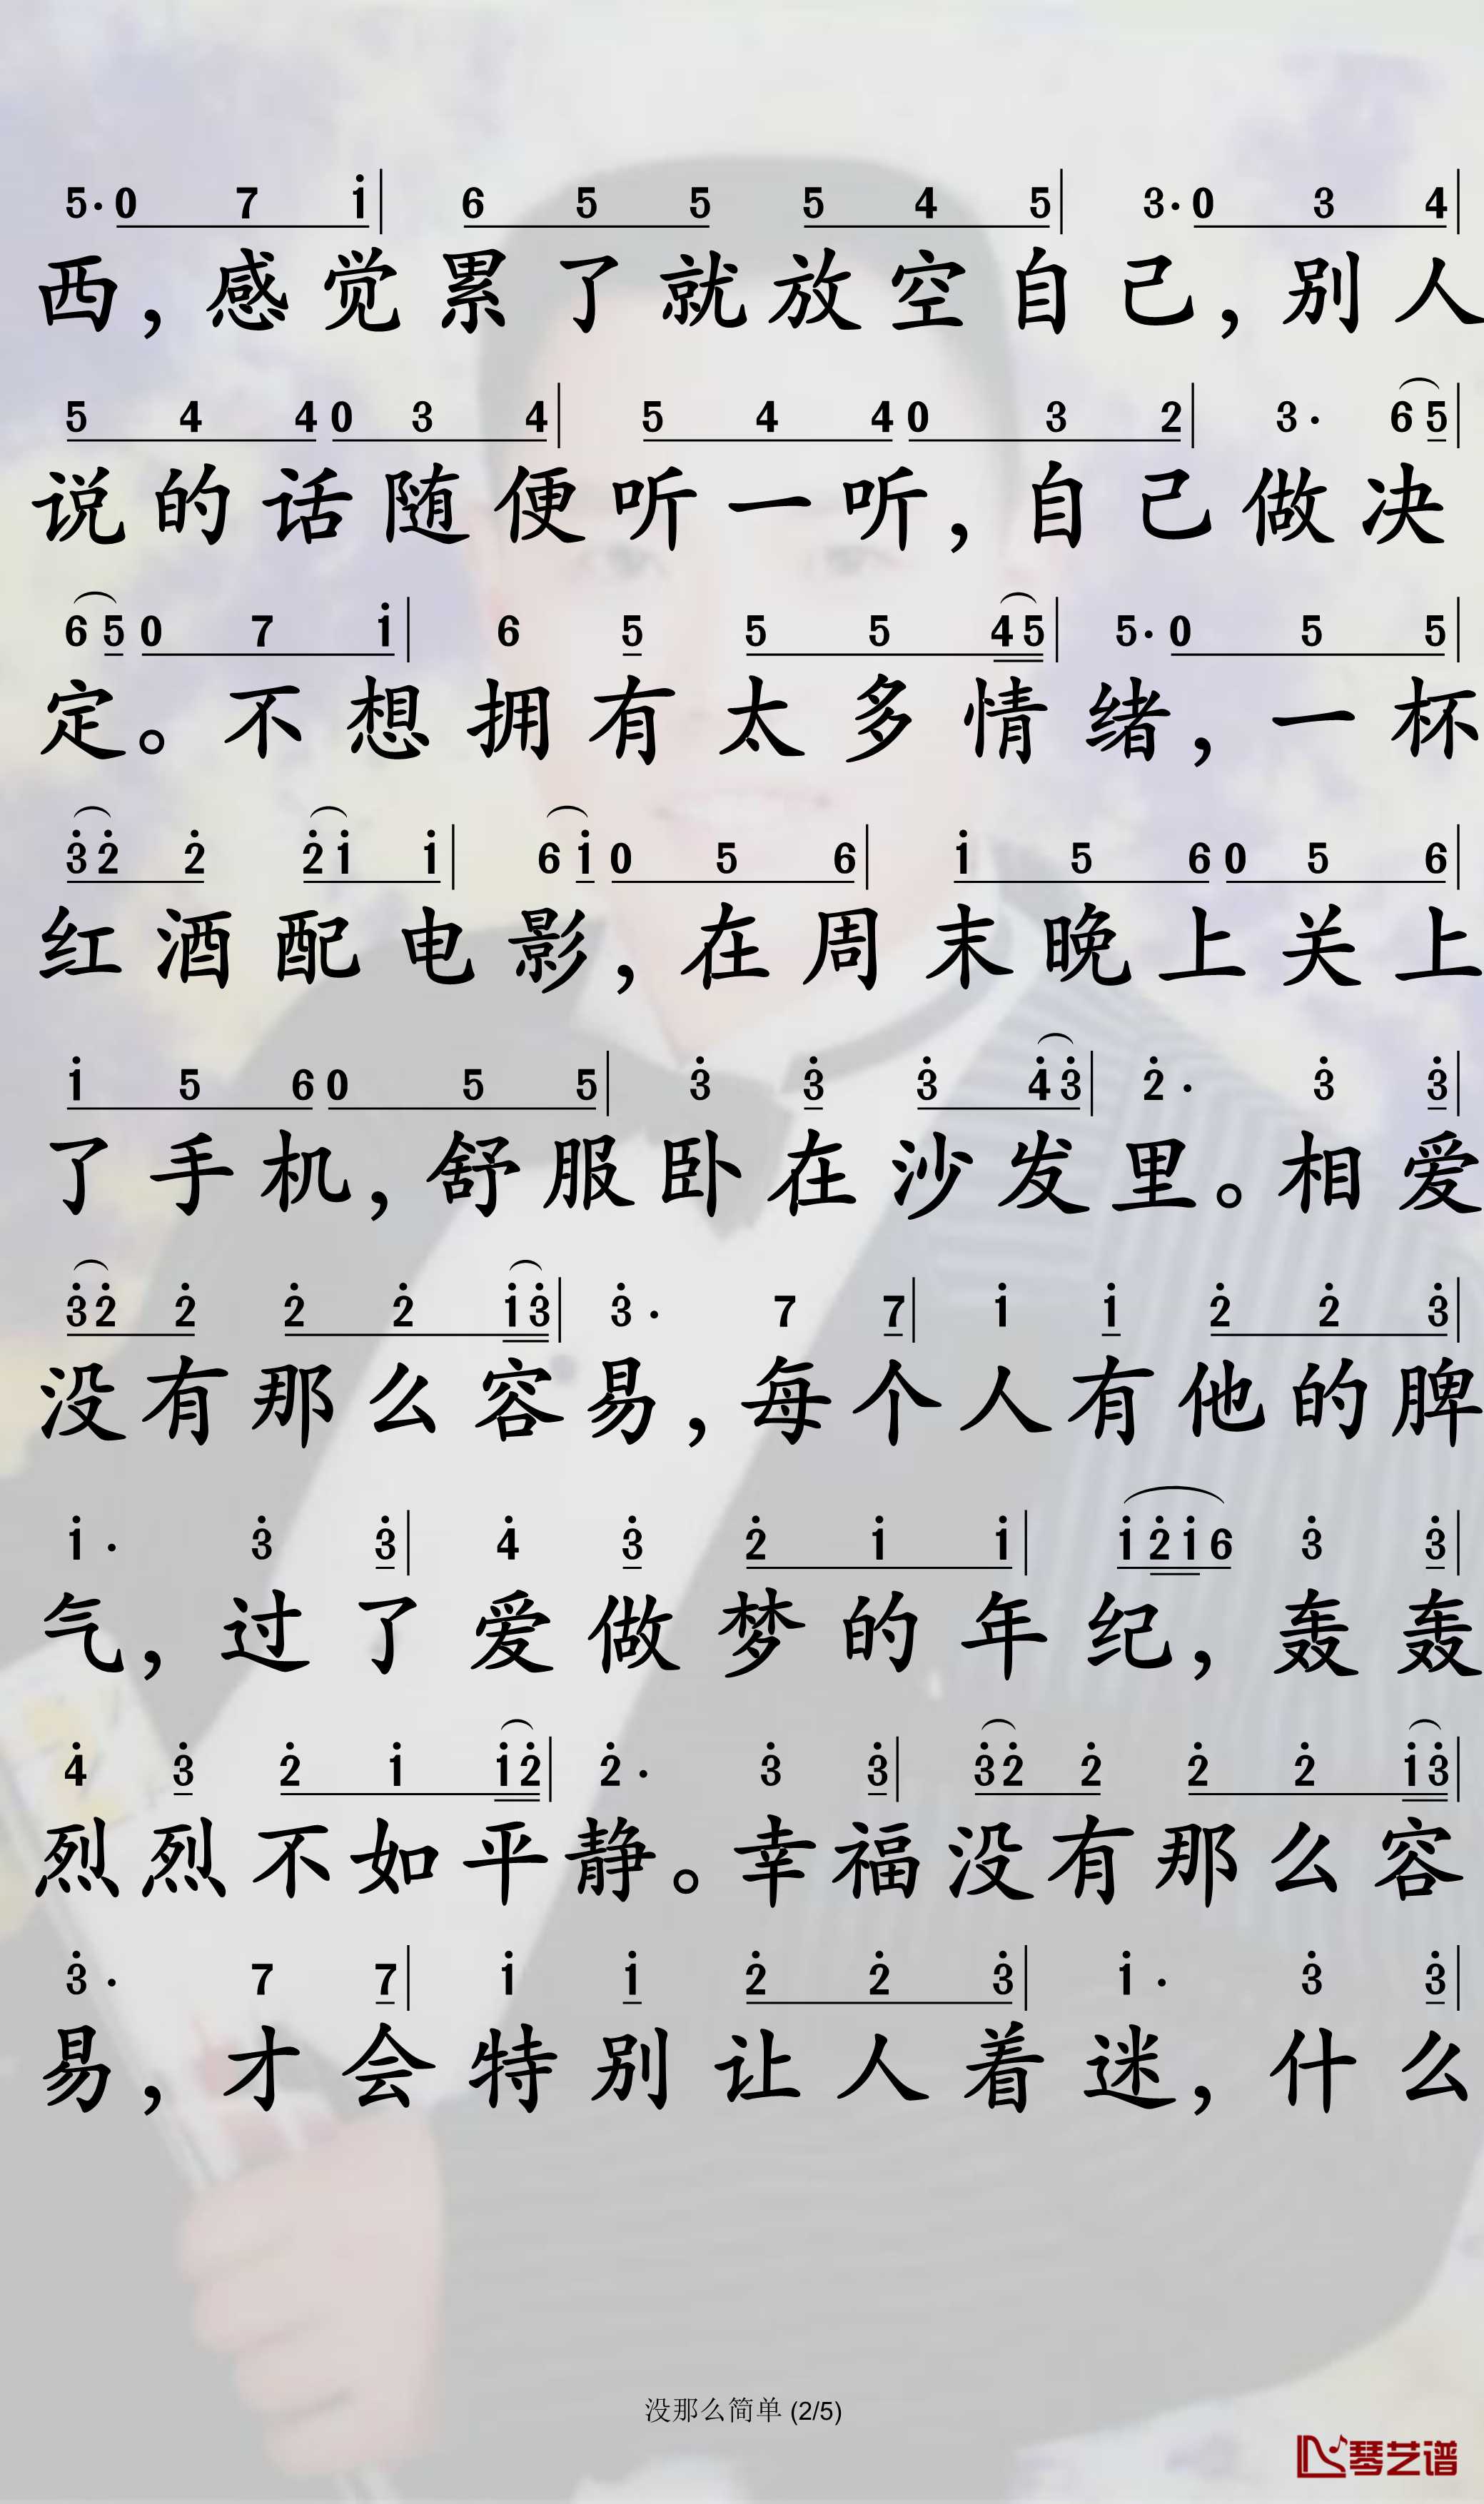 5·0 7 i| 6 5 5 5 4 5| 3·0 3 4|
西，感觉累了就放空自己，别人
5 4 4 0 3 4| 5 4 4 0 3 2| 3· 6 5|
说的话随便听一听，自己做决
6 5 0 7 i| 6 5 5 5 4 5| 5·0 5 5|
定。不想拥有太多情绪，一杯
3̇ 2̇ 2̇ 2̇ i i| 6 i 0 5 6| i 5 6 0 5 6|
红酒配电影，在周末晚上关上
i 5 6 0 5 5| 3̇ 3̇ 3̇ 4̇ 3̇| 2̇· 3̇ 3̇|
了手机，舒服卧在沙发里。相爱
3̇ 2̇ 2̇ 2̇ 2̇ i 3̇| 3̇· 7 7| i i 2̇ 2̇ 3̇|
没有那么容易，每个人有他的脾
i· 3̇ 3̇| 4̇ 3̇ 2̇ i i| i 2̇ i 6 3̇ 3̇|
气，过了爱做梦的年纪，轰轰
4̇ 3̇ 2̇ i i 2̇| 2̇· 3̇ 3̇| 3̇ 2̇ 2̇ 2̇ 2̇ i 3̇|
烈烈不如平静。幸福没有那么容
3̇· 7 7| i i 2̇ 2̇ 3̇| i· 3̇ 3̇|
易，才会特别让人着迷，什么
没那么简单 (2/5)
琴艺谱